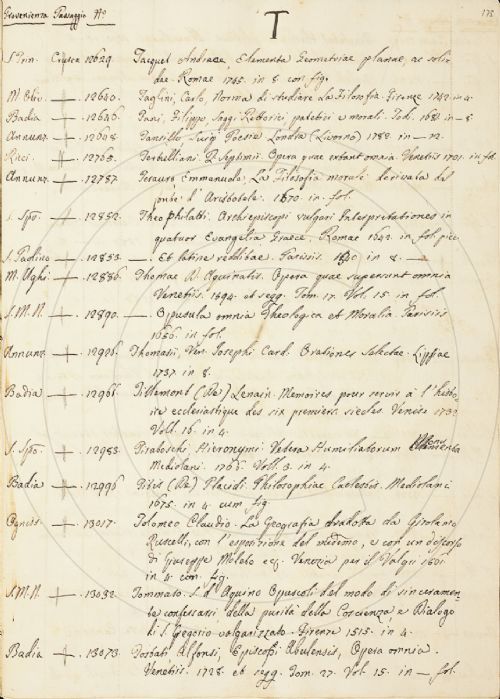 Provenienza Passaggio N.º
T
173
S. Prin. Crusca 12629. Tacquet Andreae, Elementa Geometriae planae, ac soli-
dae. Romae 1745. in 8. con fig.
M. Oliv. — 12640. Taglini, Carlo, Norma di studiare La Filosofia. Firenze 1742. in 4.
Badia — 12646. Filippo, Saggi Rettorici patetici e morali. Tod. in — 8.
Annunz. — 12648. Tansillo Luigi Poesie Londra (Livorno) 1782. in — 12.
Ricci. — 12760. Tertulliani. Q. Septimii. Opera quae extant omnia. Venetiis 1701. in fol.
Annunz. — 12787. Tesauro Emmanuele, La Filosofia morale derivata dal
fonte d' Aristotele. 1670. in. fol.
S. Spo. — 12852. Theophilatti. Archiepiscopi vulgari Interpretationes in
quatuor Evangelia Graece. Romae 1642. in fol. picc.
S. Paolino — 12853. — Et latine redditae. Parisiis. in 8. —
M. Ughi — 12886. Thomae D. Aquinatis. Opera quae supersunt omnia
Venetiis. 1594. et segg. Tom. 17. Vol. 15 in fol.
S. M. N. — 12890. — Opuscula omnia Theologica et Moralia. Parisiis
1656. in fol.
Annunz. — 12926. Thomasii, Ven. Josephi Card. Orationes Selectae. Lipsiae
1737. in 8.
Badia — 12966. Tillemont (De) Lenain. Memoires pour servir à l' histo-
ire ecclesiastique des six premiers siecles. Venise 1732
Voll. 16. in 4.
S. Spo. — 12983. Tiraboschi, Hieronymi. Vetera Humiliatorum Monumenta
Mediolani. 1766. Voll. 3. in 4.
Badia — 12996 (De) Placidi. Philosophiae Caelestis. Mediolani
1675. in 4. cum fig.
Ogniss. — 13017. Tolomeo Claudio. La Geografia tradotta da Girolamo
Ruscelli, con l'espositione del medemo, e con un discorso
di Giuseppe Moleto ec. Venezia per il Valgri
in 4. con. fig.
S. M. N. — 13032. Tommaso. S. d' Aquino Opuscoli del modo di sinceramen-
te confessarsi della purità della Coscienza e Dialogo
di S. Gregorio volgarizzato. Firenze 1515. in 4.
Badia — 13073. Tostati Alfonsi, Episcopi Abulensis, Opera omnia.
Venetiis. 1728. et segg. Tom. 27. Vol. 15. in — fol.